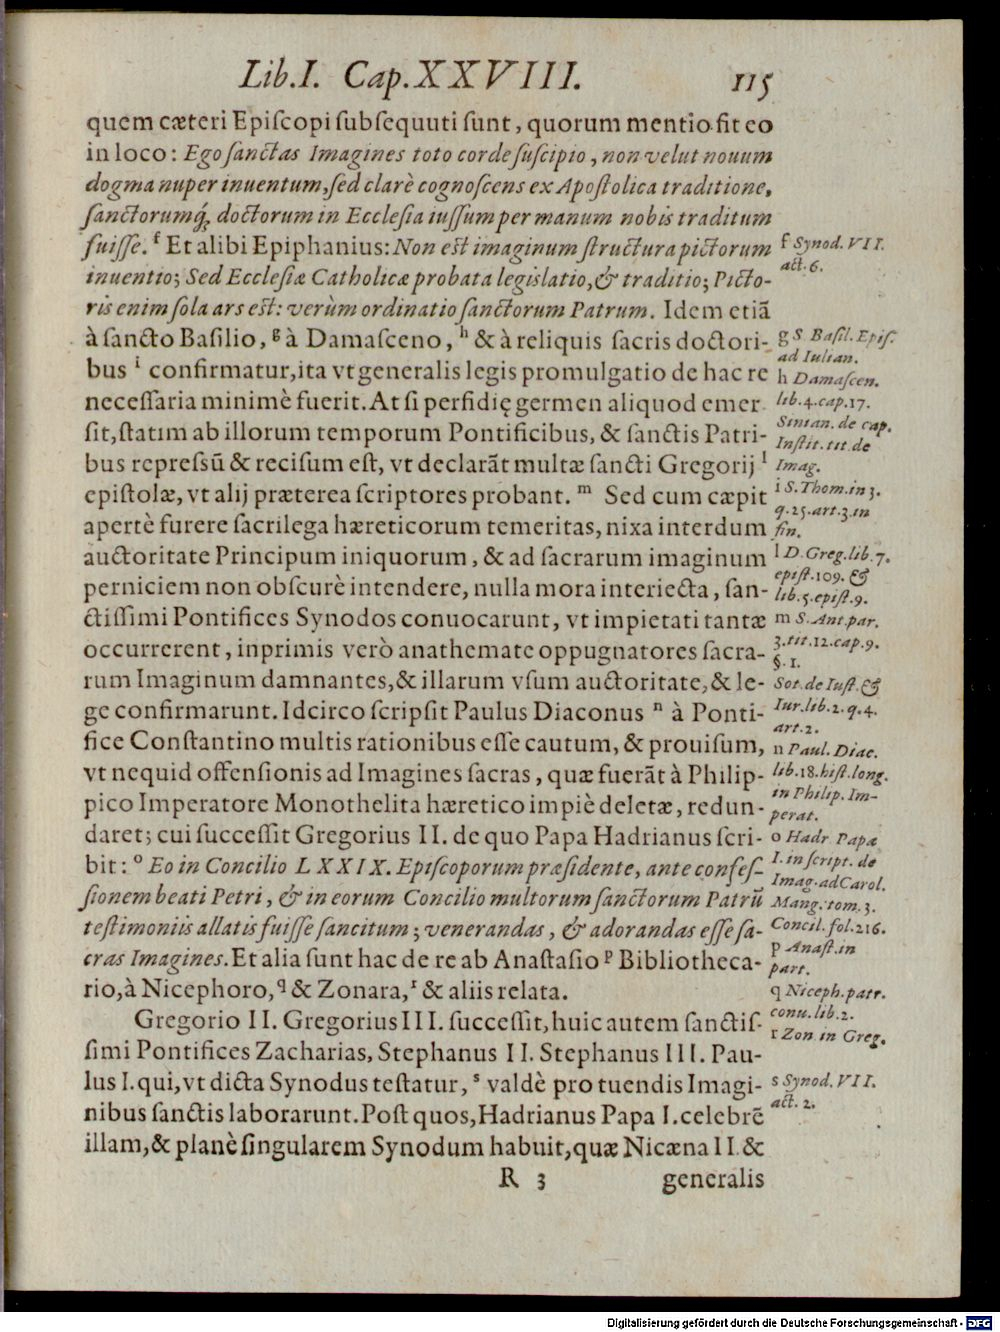 Lib. I. Cap. XXVIII. 115
quem cæteri Episcopi subsequuti sunt, quorum mentio fit eo
in loco: Ego sanctas Imagines toto corde suscipio, non velut nouum
dogma nuper inuentum, sed clarè cognoscens ex Apostolica traditione,
sanctorumq́; doctorum in Ecclesia iussum per manum nobis traditum
fuisse. f Et alibi Epiphanius: Non est imaginum structura pictorum
inuentio; Sed Ecclesiæ Catholicæ probata legislatio, & traditio; Picto-
ris enim sola ars est: verùm ordinatio sanctorum Patrum. Idem etiā
à sancto Basilio, g à Damasceno, h & à reliquis sacris doctori-
bus i confirmatur, ita vt generalis legis promulgatio de hac re
necessaria minimè fuerit. At si perfidię germen aliquod emer
sit, statim ab illorum temporum Pontificibus, & sanctis Patri-
bus repressū & recisum est, vt declarāt multæ sancti Gregorij l
epistolæ, vt alij præterea scriptores probant. m Sed cum cæpit
apertè furere sacrilega hæreticorum temeritas, nixa interdum
auctoritate Principum iniquorum, & ad sacrarum imaginum
perniciem non obscurè intendere, nulla mora interiecta, san-
ctissimi Pontifices Synodos conuocarunt, vt impietati tantæ
occurrerent, inprimis verò anathemate oppugnatores sacra-
rum Imaginum damnantes, & illarum vsum auctoritate, & le-
ge confirmarunt. Idcirco scripsit Paulus Diaconus n à Ponti-
fice Constantino multis rationibus esse cautum, & prouisum,
vt nequid offensionis ad Imagines sacras, quæ fuerāt à Philip-
pico Imperatore Monothelita hæretico impiè deletæ, redun-
daret; cui successit Gregorius II. de quo Papa Hadrianus scri-
bit: o Eo in Concilio LXXIX. Episcoporum præsidente, ante confes-
sionem beati Petri, & in eorum Concilio multorum sanctorum Patrū
testimoniis allatis fuisse sancitum; venerandas, & adorandas esse sa-
cras Imagines. Et alia sunt hac de re ab Anastasio p Bibliotheca-
rio, à Nicephoro, q & Zonara, r & aliis relata.
Gregorio II. Gregorius III. successit, huic autem sanctis-
simi Pontifices Zacharias, Stephanus II. Stephanus III. Pau-
lus I. qui, vt dicta Synodus testatur, s valdè pro tuendis Imagi-
nibus sanctis laborarunt. Post quos, Hadrianus Papa I. celebrē
illam, & planè singularem Synodum habuit, quæ Nicæna II. &
R 3 generalis
f Synod. VII.
act. 6.
g S. Basil. Epis.
ad Iulian.
h Damascen.
lib. 4. cap. 17.
Sman. de cap.
Instit. tit. de
Imag.
i S. Thom. in 3.
q. 25. art. 3. in
fin.
l D. Greg. lib. 7.
epist. 109. &
lib. 5. epist. 9.
m S. Ant. par.
3. tit. 12. cap. 9.
§. 1.
Sot. de Iust. &
Iur. lib. 2. q. 4.
art. 2.
n Paul. Diac.
lib. 18. hist. long.
in Philip. Im-
perat.
o Hadr. Papa
I. in script. de
Imag. ad Carol.
Mang. tom. 3.
Concil. fol. 216.
p Anast. in
part.
q Niceph. patr.
conu. lib. 2.
r Zon in Greg.
s Synod. VII.
act. 2.
Digitalisierung gefördert durch die Deutsche Forschungsgemeinschaft - DFG